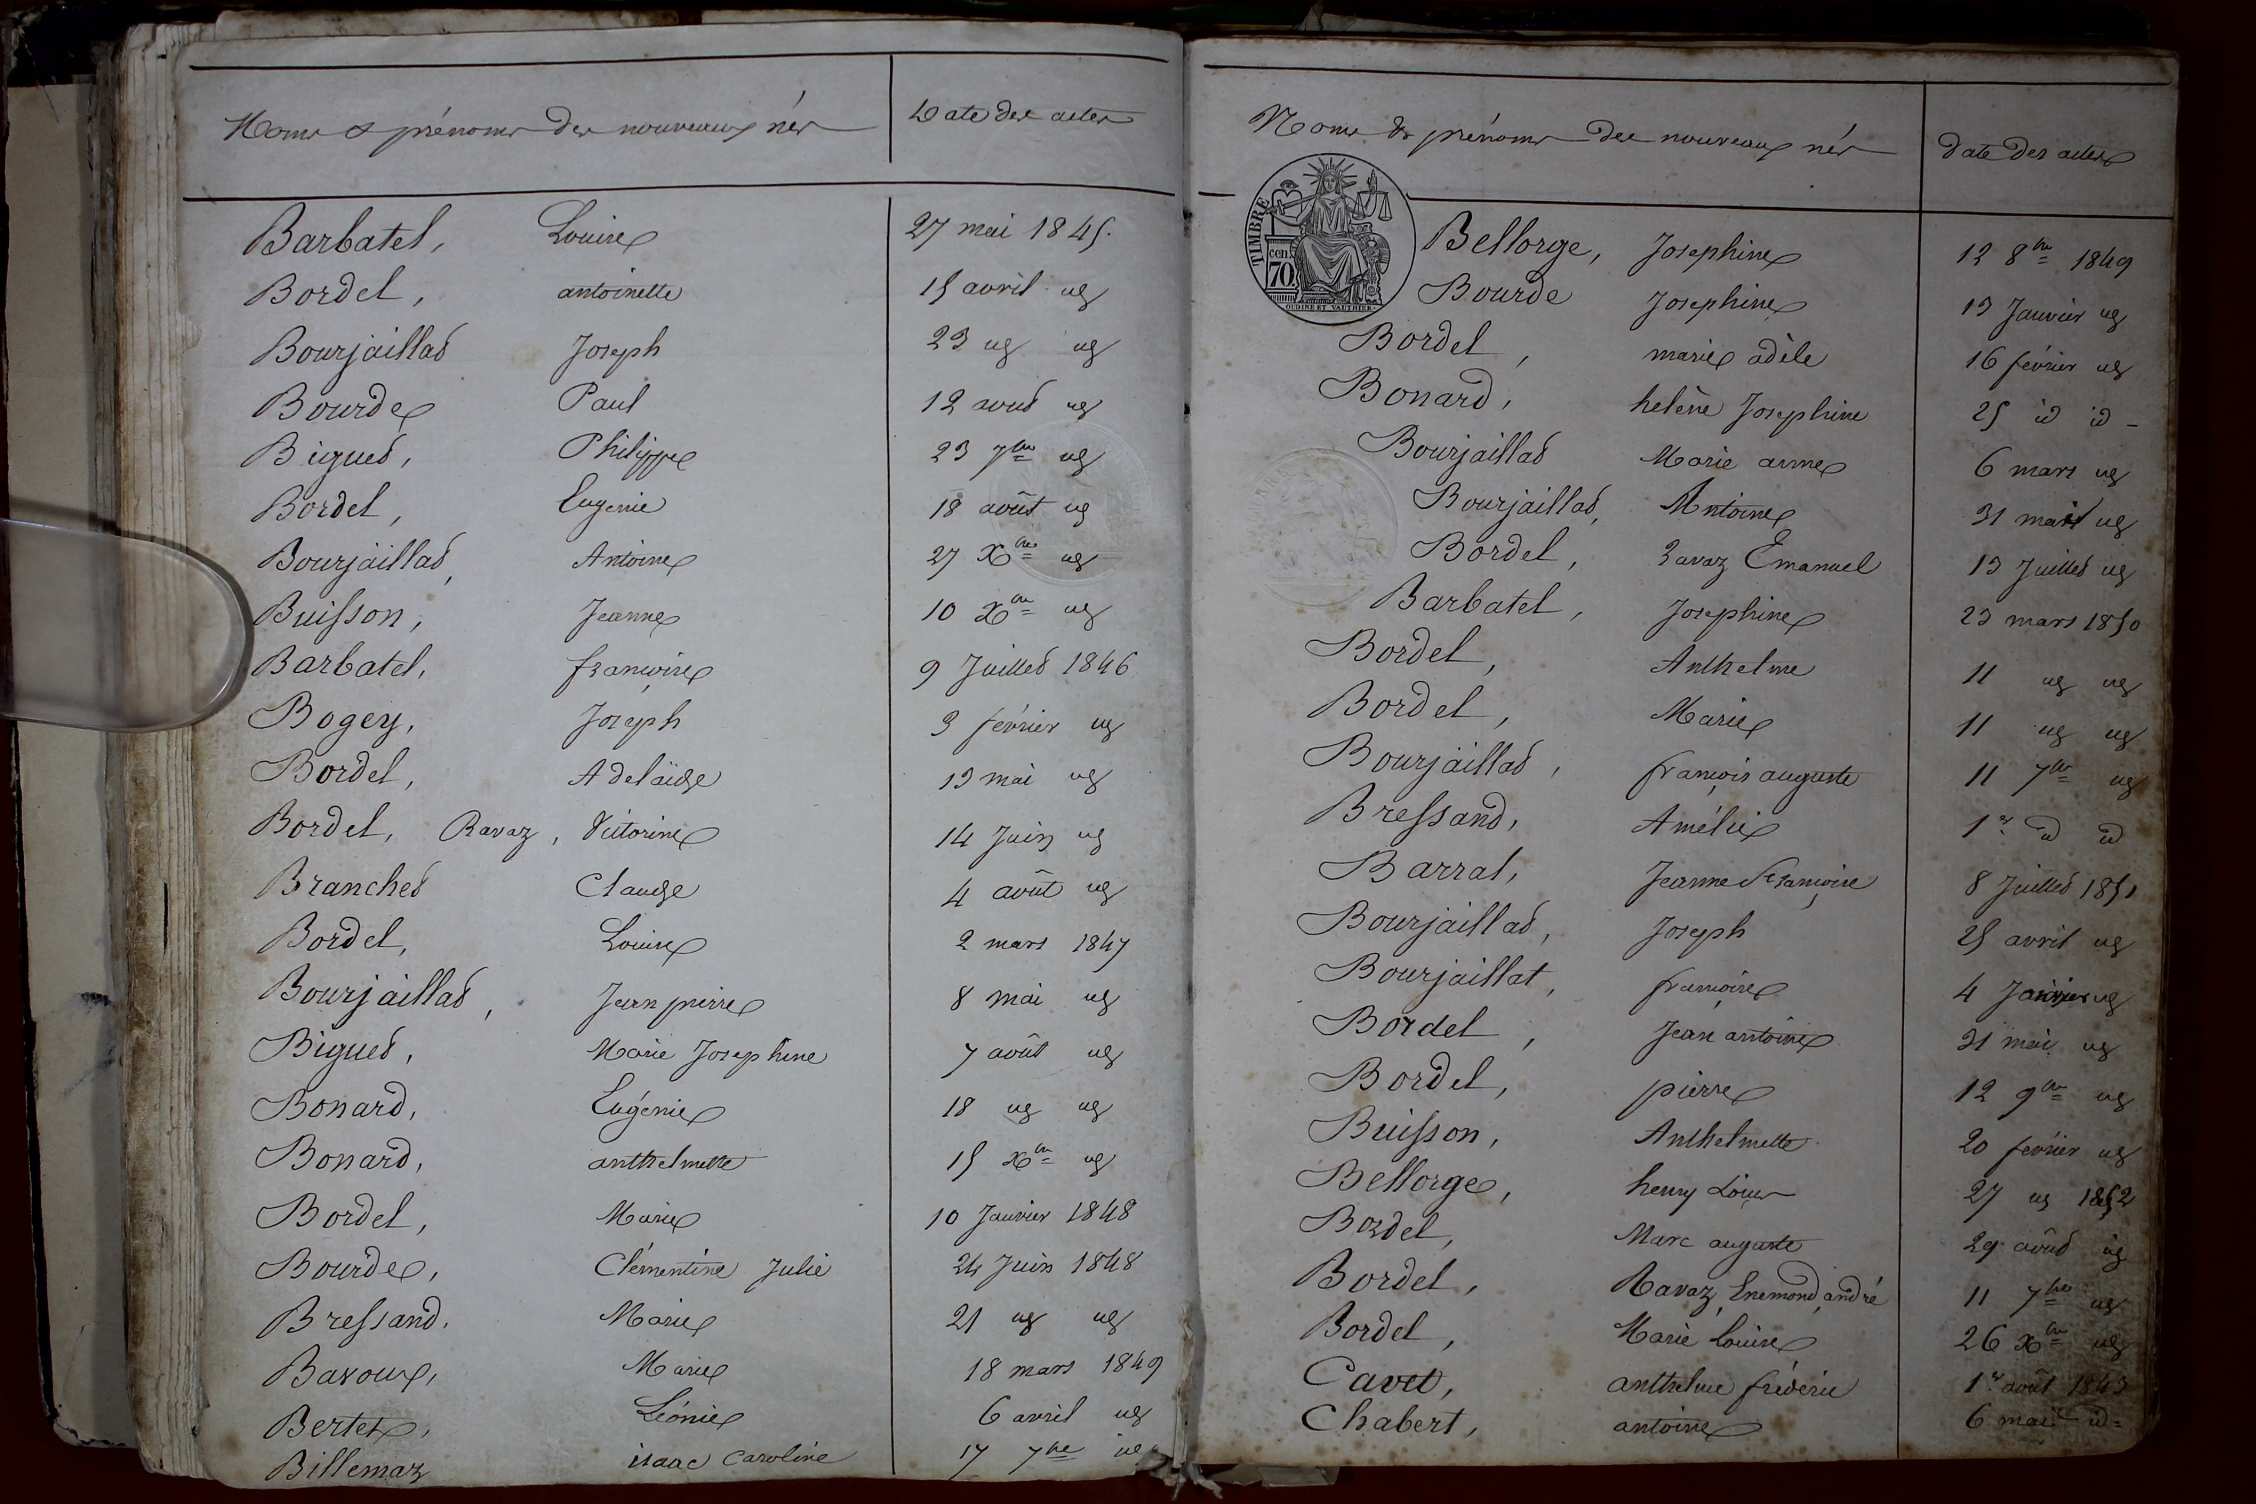 Noms & prénoms des nouveaux nés Date des actes
Barbatel, Louise 27 mai 1845.
Bordel, antoinette 15 avril ug
Bourjaillat Joseph 23 ug ug
Bourde Paul 12 aout ug
Biguet, Philippe 23 7bre ug
Bordel, Eugenie 18 août ug
Bourjaillat, Antoine 27 Xbre ug
Buisson, Jeanne 10 Xbre ug
Barbatel, françoise 9 Juillet 1846
Bogey, Joseph 3 février ug
Bordel, Adelaïde 13 mai ug
Bordel, Ravaz, Victorine 14 Juin ug
Branchet Claude 4 août ug
Bordel, Louise 2 mars 1847
Bourjaillat, Jean pierre 8 mai ug
Biguet, Marie Josephine 7 août ug
Bonard, Eugénie 18 ug ug
Bonard, anthelmette 15 Xbre ug
Bordel, Marie 10 Janvier 1848
Bourde, Clémentine Julie 24 Juin 1848
Bressand. Marie 21 ug ug
Bavoux, Marie 18 mars 1849
Bertet, Léonie 6 avril ug
Billemaz isaac Caroline 17 7bre ug
Noms & prénoms des nouveaux nés date des actes
TIMBRE
cen.
70
OUDINE ET VAUTHIER
Bellorge, Josephine 12 8bre 1849
Bourde Josephine 13 Janvier ug
Bordel, marie adèle 16 février ug
Bonard, helène Josephine 25 id id -
Bourjaillat Marie anne 6 mars ug
Bourjaillat, Antoine 31 ug
Bordel, Ravaz Emanuel 13 Juillet ug
Barbatel, Josephine 23 mars 1850
Bordel, Anthelme 11 ug ug
Bordel, Marie 11 ug ug
Bourjaillat, françois auguste 11 7bre ug
Bressand, Amélie 1er id id
Barral, Jeanne françoise 8 Juillet 1851
Bourjaillat, Joseph 25 avril ug
Bourjaillat, françoise 4 ug
Bordel, Jean antoine 31 mai ug
Bordel, pierre 12 9bre ug
Buisson, Anthelmette 20 février ug
Bellorge, henry Louis 27 ug 1852
Bordel, Marc auguste 29 aôut ug
Bordel, Ravaz, Enemond, andré 11 7bre ug
Bordel, Marie Louise 26 Xbre ug
Cavet, anthelme fréderic 1er août 1843
Chabert, antoine 6 mai id =